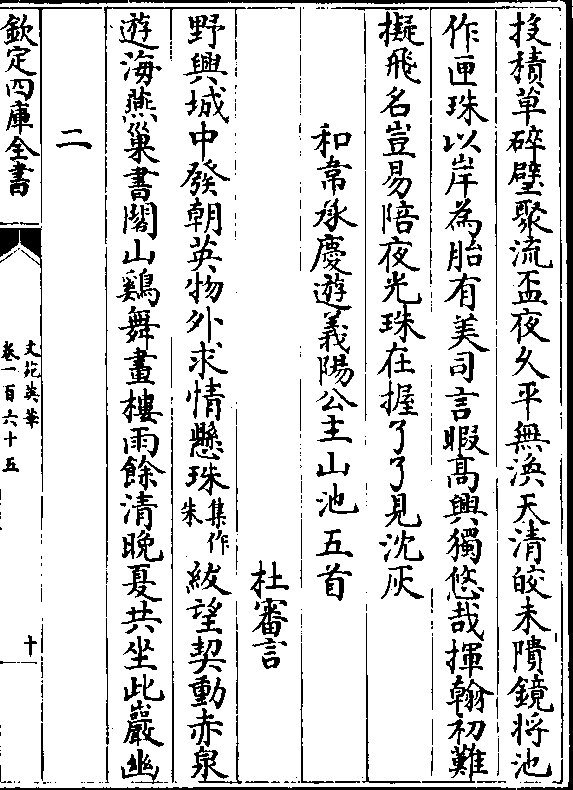 投積草碎壁聚流盃夜久平無渙天清皎未隤鏡将池
作匣珠以岸為胎有美司言暇髙興獨悠哉揮翰初難
擬飛名豈易陪夜光珠在握了了見沈灰
和韋承慶遊義陽公主山池五首
杜審言
野興城中發朝英物外求情懸珠集作朱紱望契動赤泉
遊海燕巢書閣山鷄舞畫樓雨餘清晚夏共坐此巖幽
二
欽定四庫全書
文苑英華
卷一百六十五
十